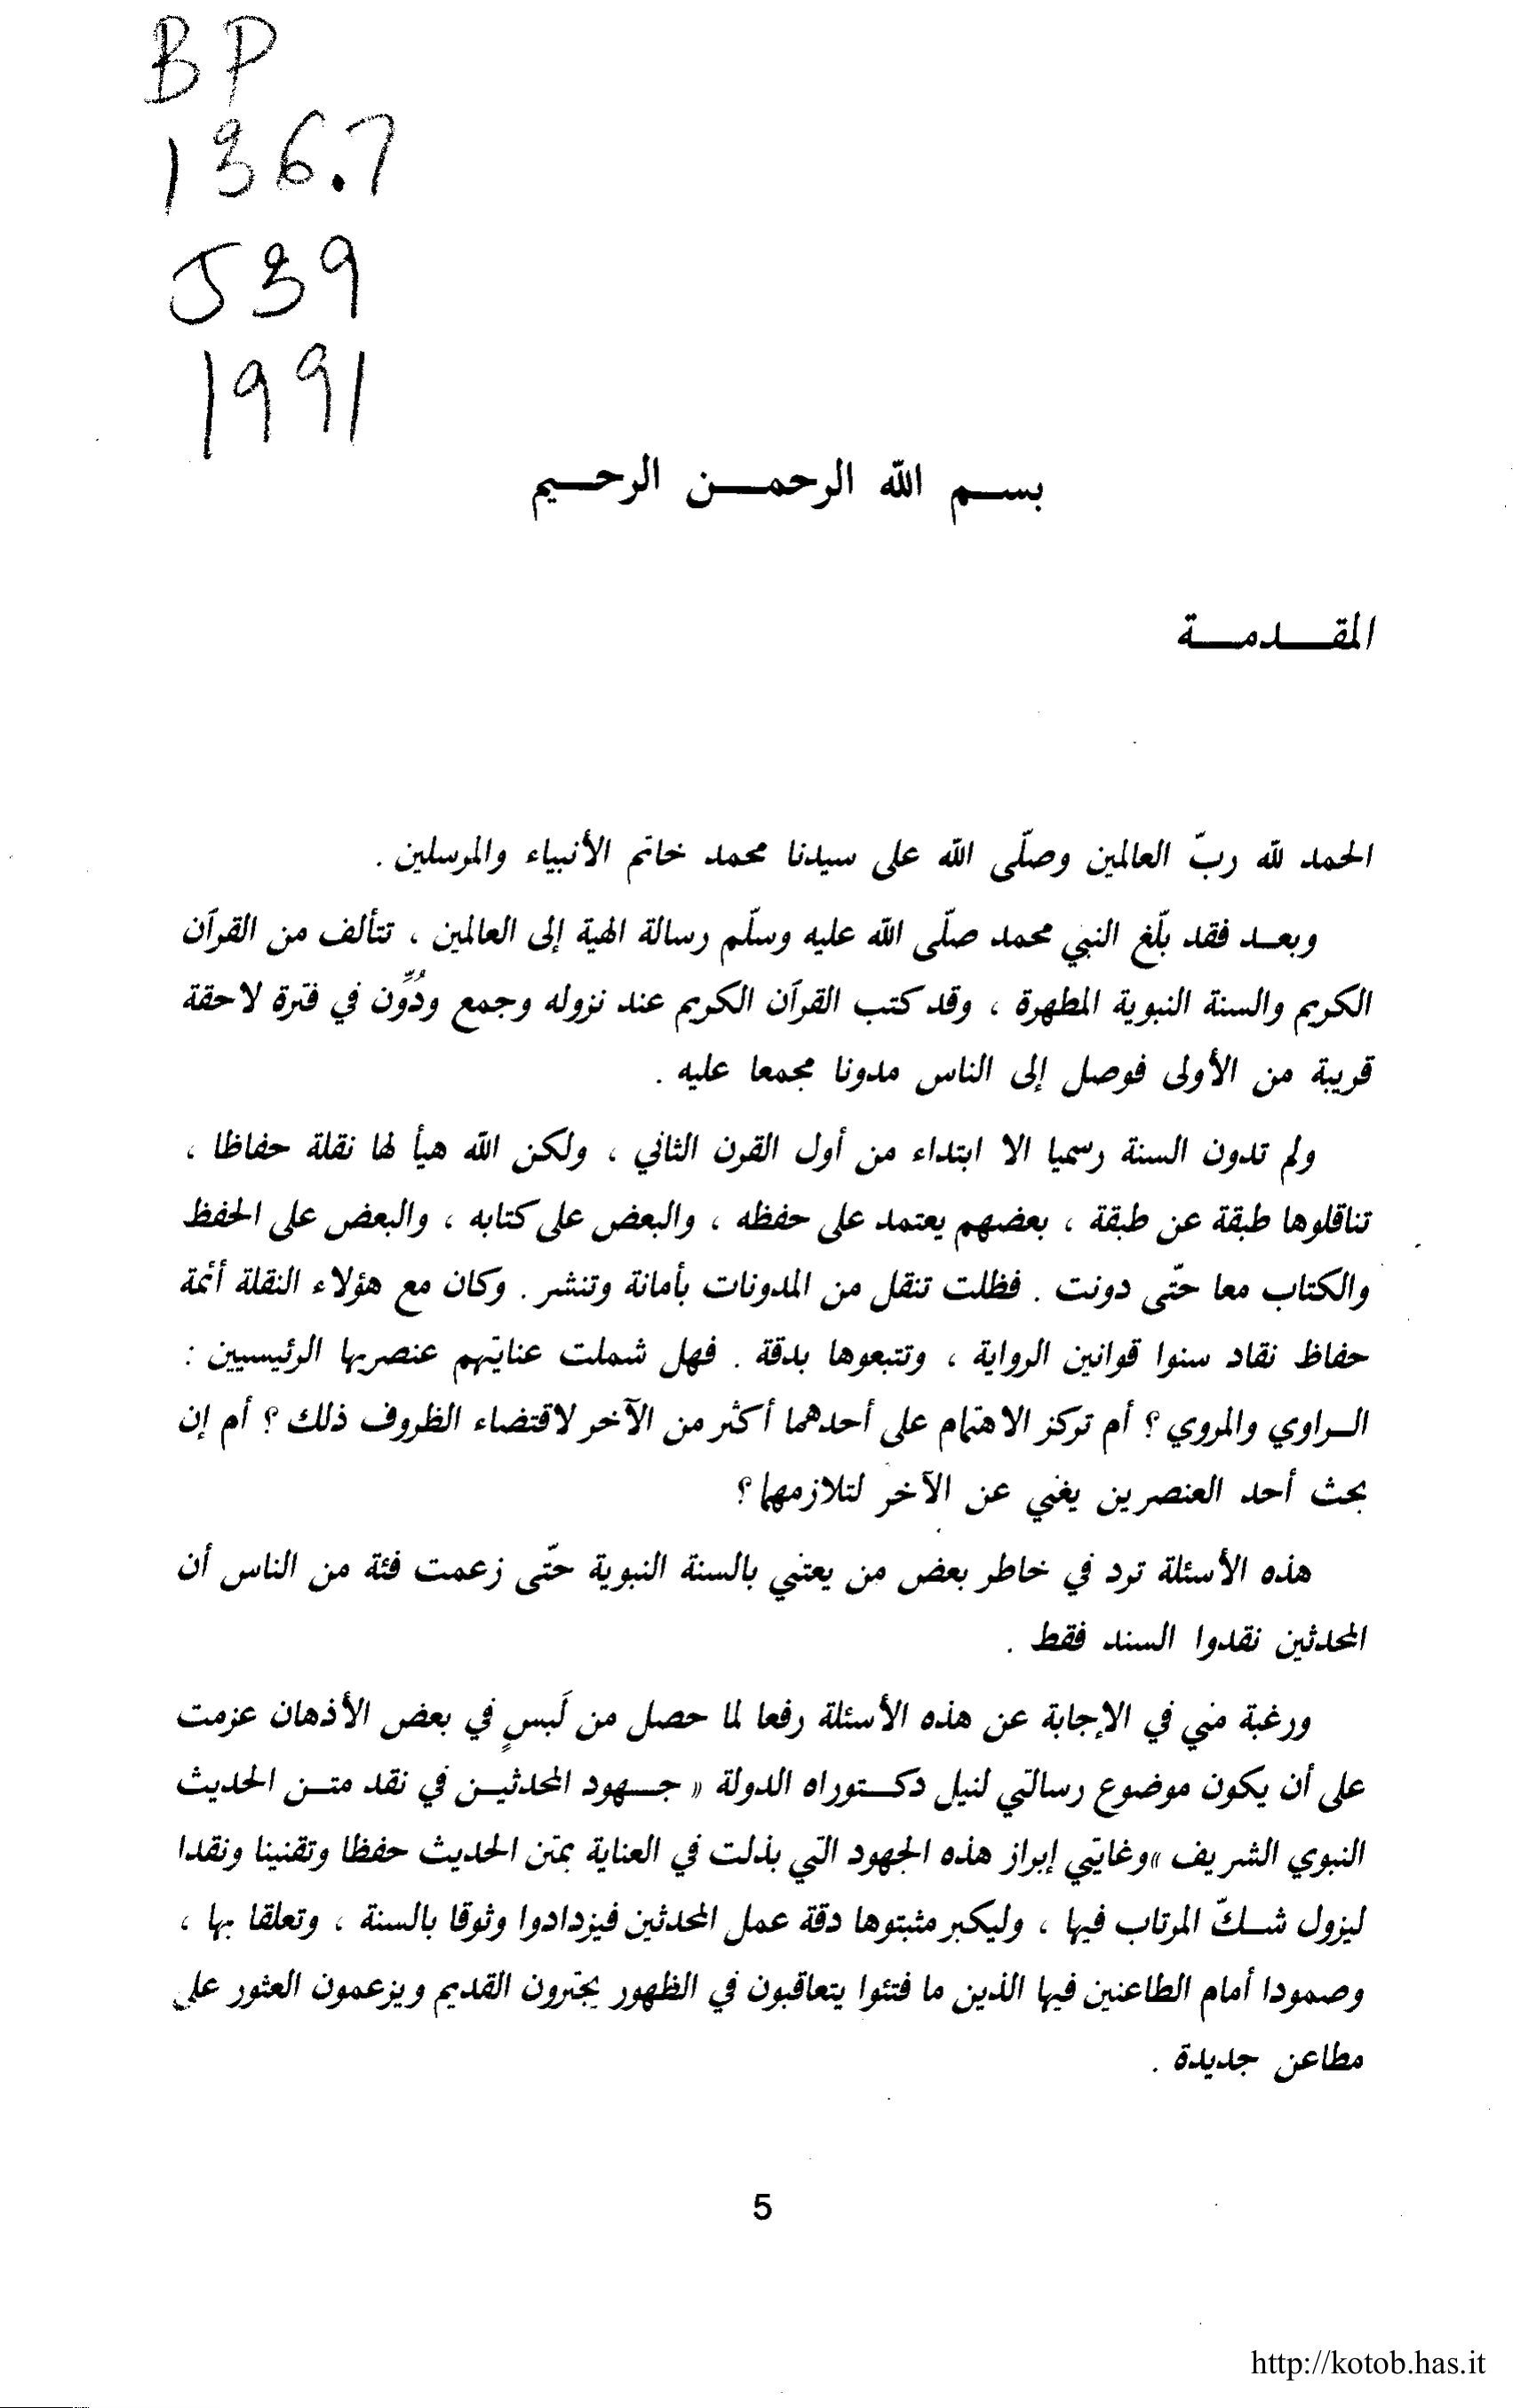 BP
136.7
J39
1991
بسم الله الرحمن الرحيم
المقدمة
الحمد لله ربّ العالمين وصلّى الله على سيدنا محمد خاتم الأنبياء والمرسلين .
وبعد فقد بلّغ النبي محمد صلّى الله عليه وسلّم رسالة الهية إلى العالمين ، تتألف من القرآن
الكريم والسنة النبوية المطهرة ، وقد كتب القرآن الكريم عند نزوله وجمع ودُوِّن في فترة لاحقة
قريبة من الأولى فوصل إلى الناس مدونا مجمعا عليه .
ولم تدون السنة رسميا الا ابتداء من أول القرن الثاني ، ولكن الله هيأ لها نقلة حفاظا ،
تناقلوها طبقة عن طبقة ، بعضهم يعتمد على حفظه ، والبعض على كتابه ، والبعض على الحفظ
والكتاب معا حتّى دونت . فظلت تنقل من المدونات بأمانة وتنشر . وكان مع هؤلاء النقلة أئمة
حفاظ نقاد سنوا قوانين الرواية ، وتتبعوها بدقة . فهل شملت عنايتهم عنصريها الرئيسيين :
الراوي والمروي ؟ أم تركز الاهتمام على أحدهما أكثر من الآخر لاقتضاء الظروف ذلك ؟ أم إن
بحث أحد العنصرين يغني عن الآخر لتلازمهما ؟
هذه الأسئلة ترد في خاطر بعض من يعتني بالسنة النبوية حتّى زعمت فئة من الناس أن
المحدثين نقدوا السند فقط .
ورغبة مني في الإجابة عن هذه الأسئلة رفعا لما حصل من لَبسٍ في بعض الأذهان عزمت
على أن يكون موضوع رسالتي لنيل دكتوراه الدولة « جهود المحدثين في نقد متن الحديث
النبوي الشريف » وغايتي إبراز هذه الجهود التي بذلت في العناية بمتن الحديث حفظا وتقنينا ونقدا
ليزول شكّ المرتاب فيها ، وليكبر مثبتوها دقة عمل المحدثين فيزدادوا وثوقا بالسنة ، وتعلقا بها ،
وصمودا أمام الطاعنين فيها الذين ما فتئوا يتعاقبون في الظهور يجترون القديم ويزعمون العثور على
مطاعن جديدة .
5
http://kotob.has.it